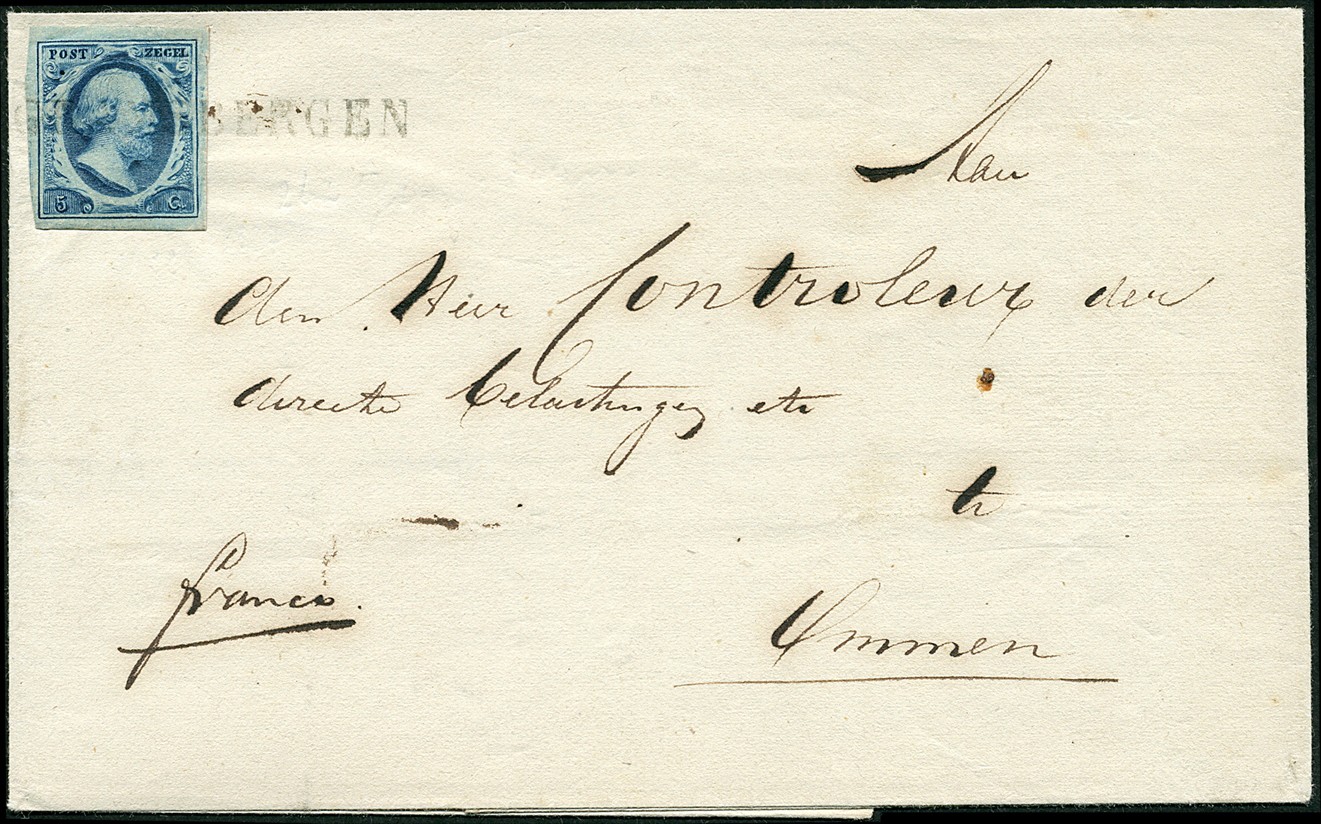 POST ZEGEL
BERGEN
5 C.
Aan
den Heer Controleur der
directe belastingen etc
te
Ommen
franco.